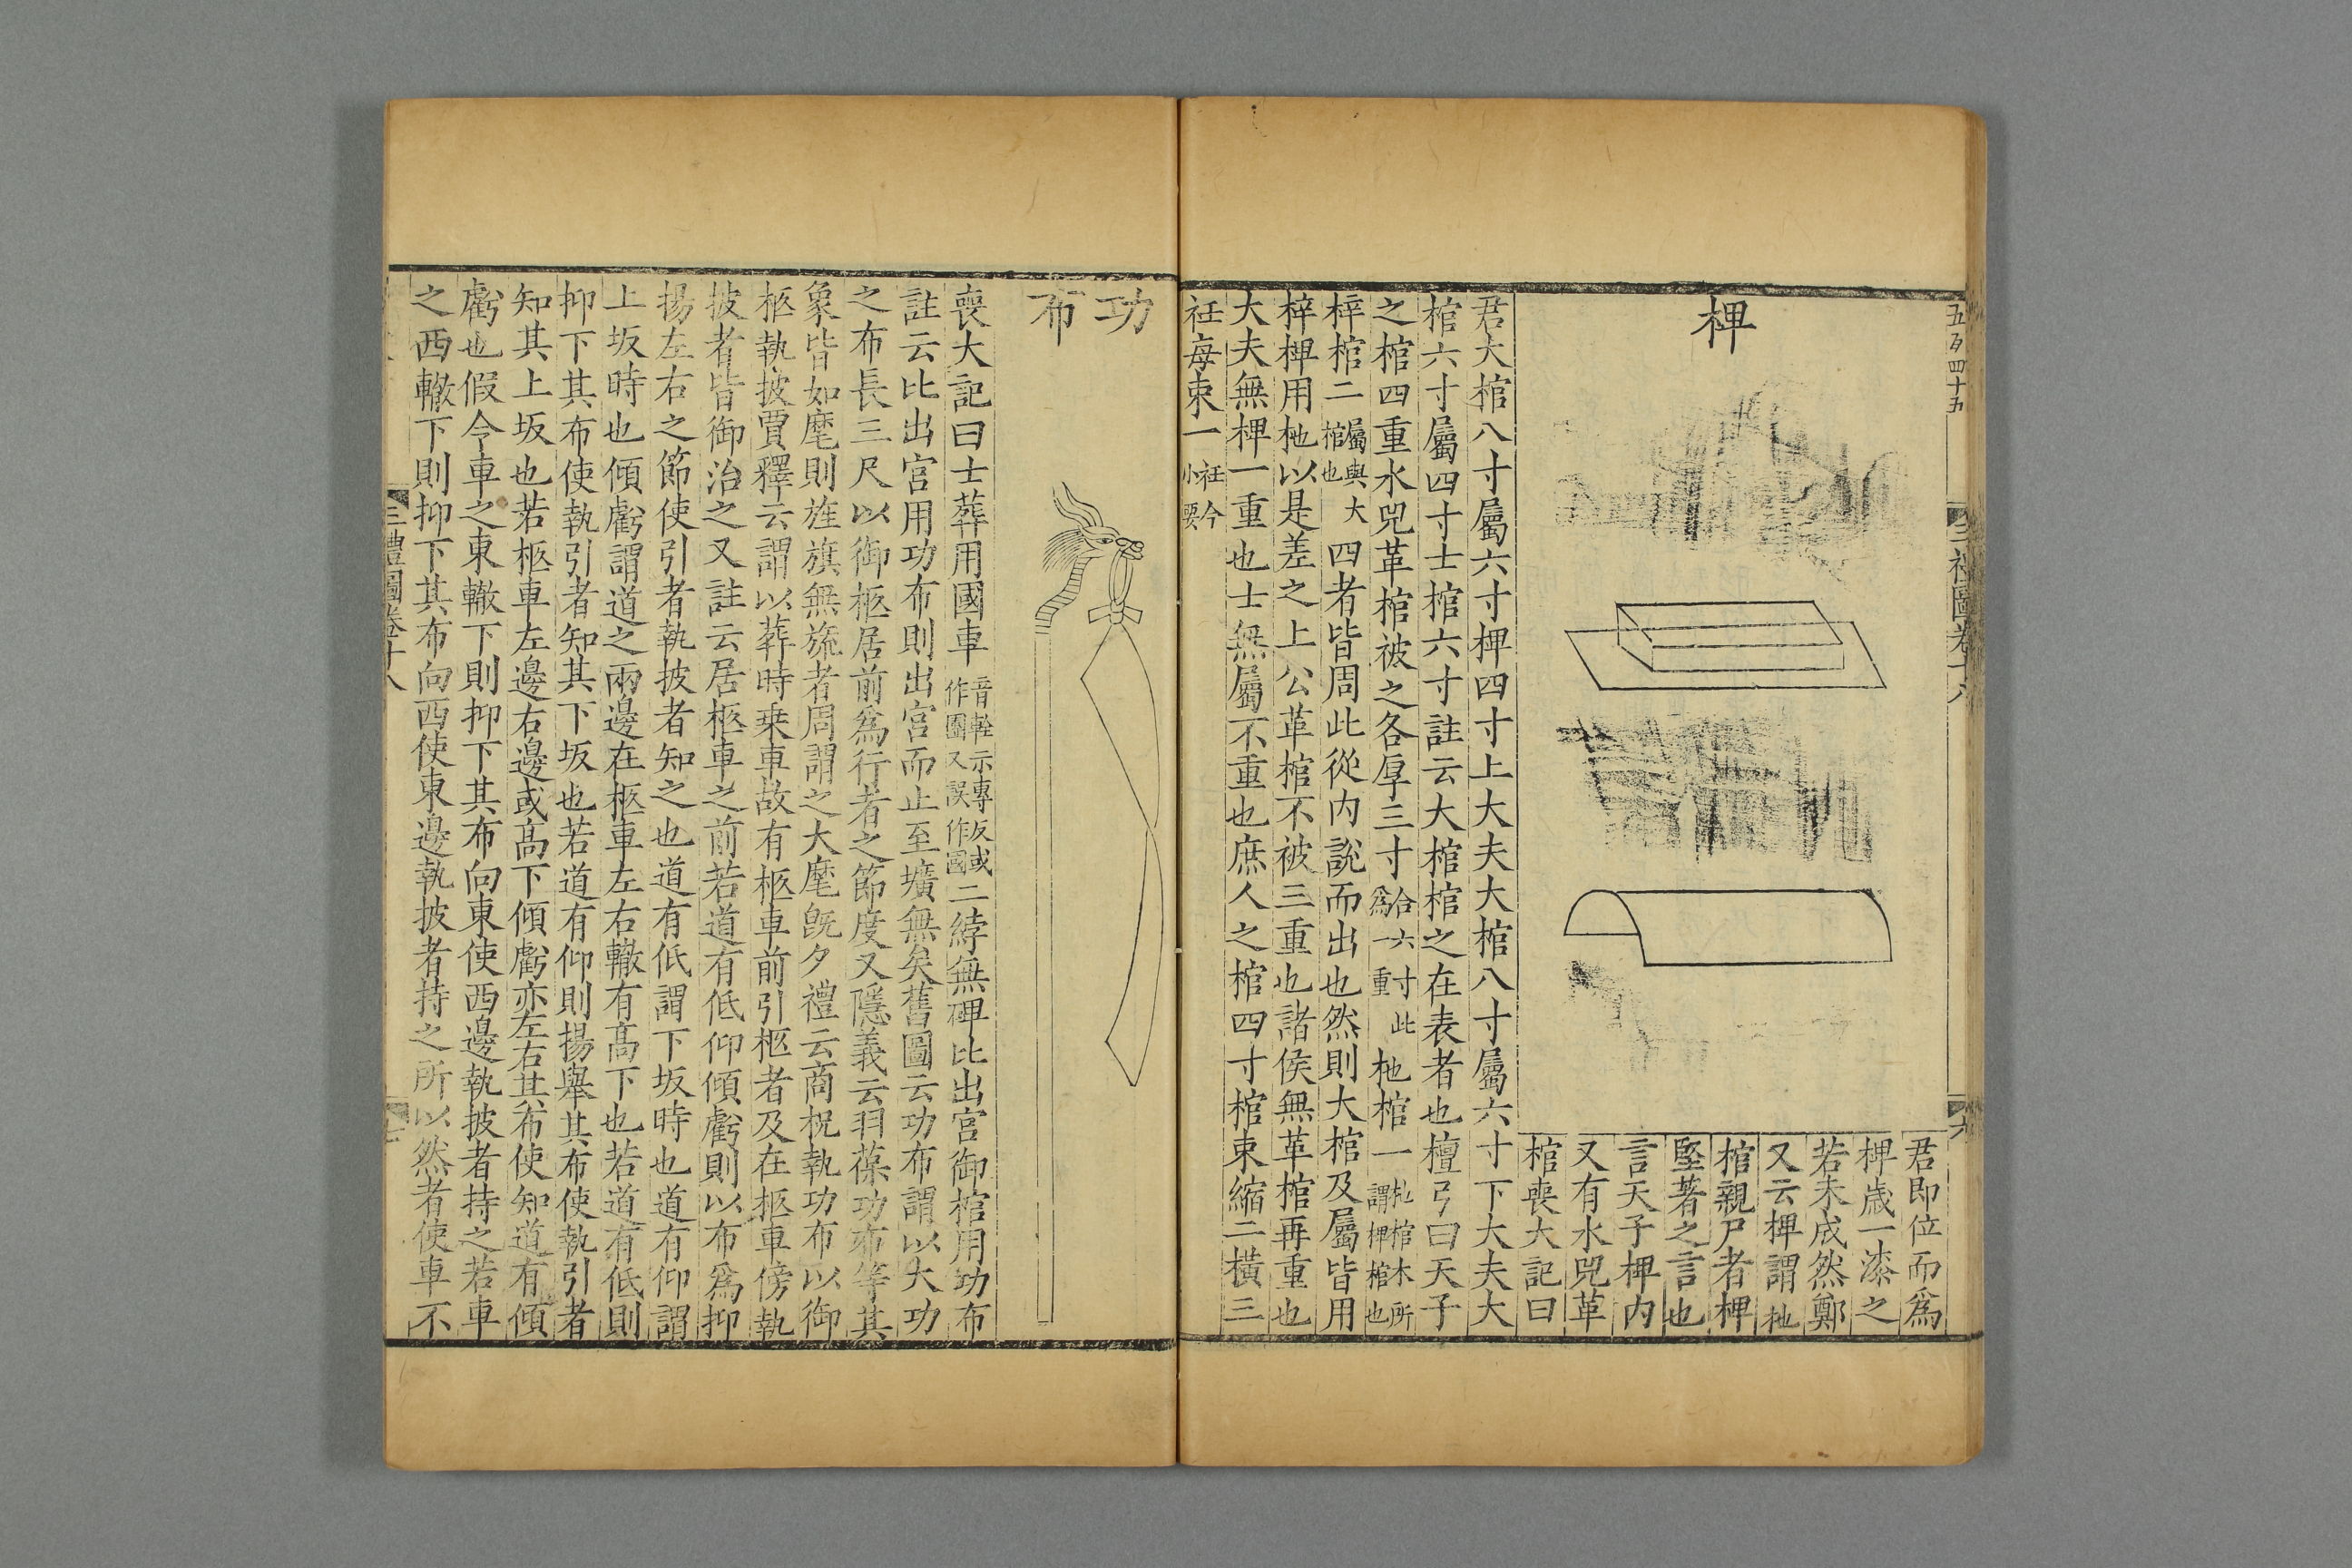 五百四十五
三禮圖卷十八
六
椑
君即位而爲
椑歲一漆之
若未成然鄭
又云椑謂杝
棺親尸者椑
堅著之言也
言天子椑内
又有水兕革
棺喪大記曰
君大棺八寸屬六寸椑四寸上大夫大棺八寸屬六寸下大夫大
棺六寸屬四寸士棺六寸註云大棺棺之在表者也檀弓曰天子
之棺四重水兕革棺被之各厚三寸合六寸此爲一重杝棺一杝棺木所謂椑棺也
梓棺二屬與大棺也四者皆周此從内說而出也然則大棺及屬皆用
梓椑用杝以是差之上公革棺不被三重也諸侯無革棺再重也
大夫無椑一重也士無屬不重也庶人之棺四寸棺束縮二橫三
衽每束一衽今小要
功布
喪大記曰士葬用國車音輇示專反或作團又誤作國二綍無碑比出宮御棺用功布
註云比出宮用功布則出宮而止至壙無矣舊圖云功布謂以大功
之布長三尺以御柩居前爲行者之節度又隱義云羽葆功布等其
象皆如麾則旌旗無旒者周謂之大麾旣夕禮云商祝執功布以御
柩執披賈釋云謂以葬時乗車故有柩車前引柩者及在柩車傍執
披者皆御治之又註云居柩車之前若道有低仰傾虧則以布爲抑
揚左右之節使引者執披者知之也道有低謂下坂時也道有仰謂
上坂時也傾虧謂道之兩邊在柩車左右轍有高下也若道有低則
抑下其布使執引者知其下坂也若道有仰則揚舉其布使執引者
知其上坂也若柩車左邊右邊或高下傾虧亦左右其布使知道有傾
虧也假令車之東轍下則抑下其布向東使西邊執披者持之若車
之西轍下則抑下其布向西使東邊執披者持之所以然者使車不
三禮圖卷十八